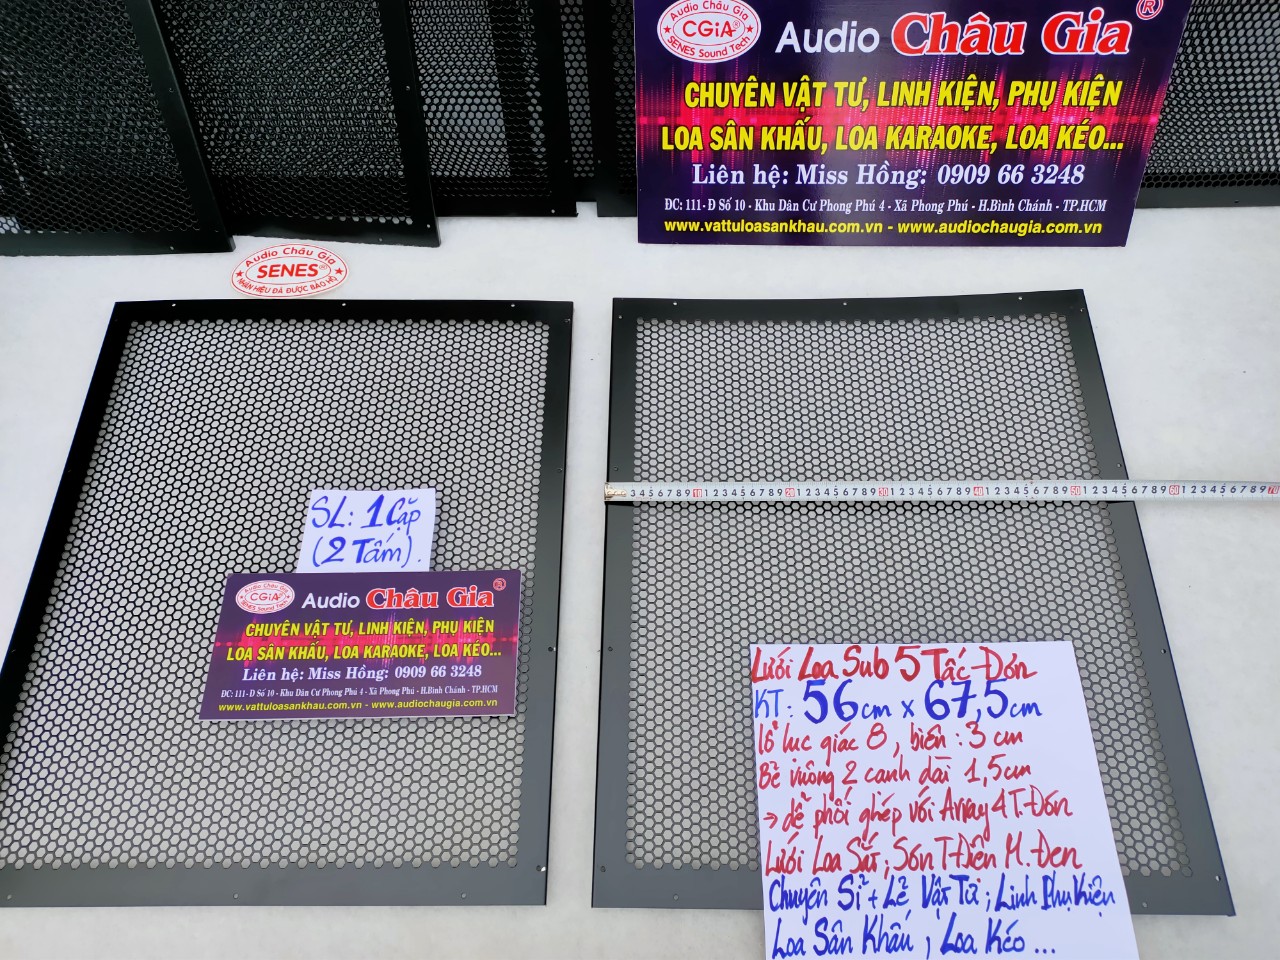 Audio Châu Gia
CGiA®
SENES Sound Tech
Audio Châu Gia®
CHUYÊN VẬT TƯ, LINH KIỆN, PHỤ KIỆN
LOA SÂN KHẤU, LOA KARAOKE, LOA KÉO...
Liên hệ: Miss Hồng: 0909 66 3248
ĐC: 111- Đ Số 10 - Khu Dân Cư Phong Phú 4 - Xã Phong Phú - H.Bình Chánh - TP.HCM
www.vattuloasankhau.com.vn - www.audiochaugia.com.vn
Audio Châu Gia
SENES®
NHÃN HIỆU ĐÃ ĐƯỢC BẢO HỘ
3 4 5 6 7 8 9 10 1 2 3 4 5 6 7 8 9 20 1 2 3 4 5 6 7 8 9 30 1 2 3 4 5 6 7 8 9 40 1 2 3 4 5 6 7 8 9 50 1 2 3 4 5 6 7 8 9 60 1 2 3 4 5 6 7 8 9 70
SL: 1 Cặp
(2 Tấm).
Audio Châu Gia
CGiA®
SENES Sound Tech
Audio Châu Gia®
CHUYÊN VẬT TƯ, LINH KIỆN, PHỤ KIỆN
LOA SÂN KHẤU, LOA KARAOKE, LOA KÉO...
Liên hệ: Miss Hồng: 0909 66 3248
ĐC: 111- Đ Số 10 - Khu Dân Cư Phong Phú 4 - Xã Phong Phú - H.Bình Chánh - TP.HCM
www.vattuloasankhau.com.vn - www.audiochaugia.com.vn
Lưới Loa Sub 5 Tấc Đơn
KT: 56cm x 67,5cm
lỗ lục giác 8, biên: 3 cm
Bẻ vuông 2 cạnh dài 1,5cm
→ dễ phối ghép với Array 4 T.Đơn
Lưới Loa Sắt, Sơn T.Điện M.Đen
Chuyên Sỉ + Lẻ Vật Tư; Linh Phụ Kiện
Loa Sân Khấu, Loa Kéo...